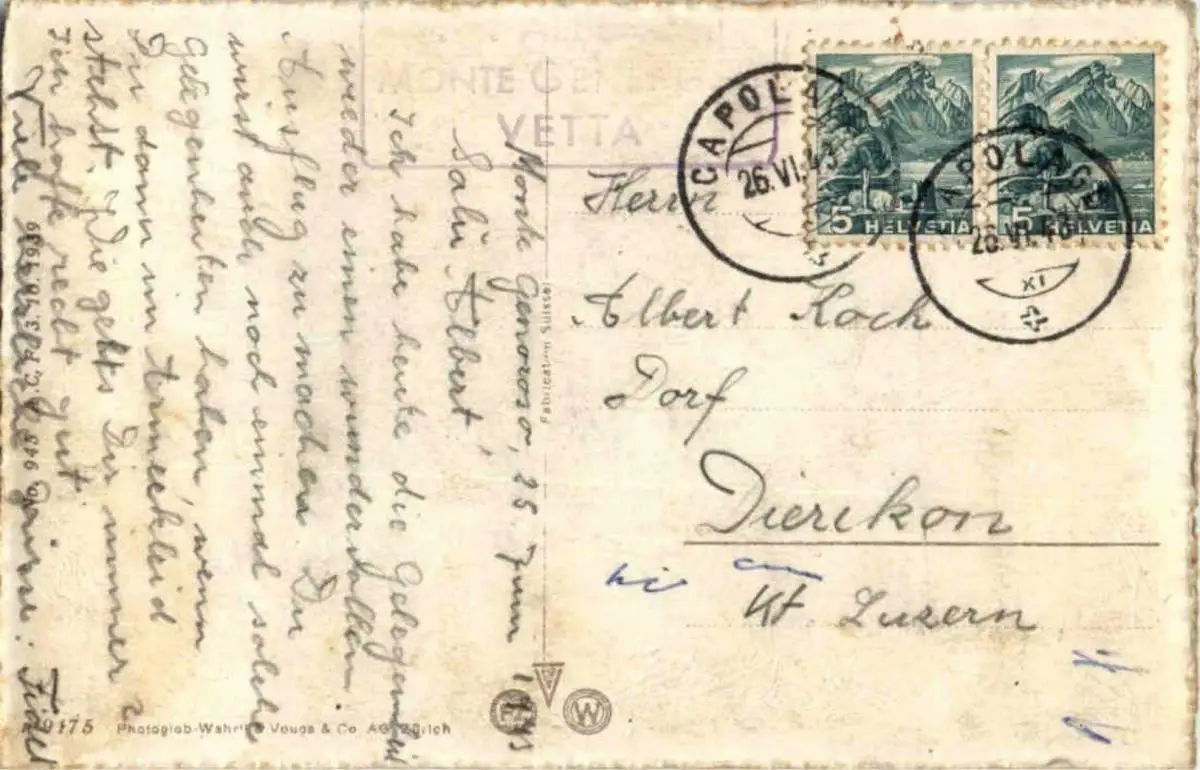 MONTE GENEROSO
VETTA
CAPOLAGO
26.VI.43
5 HELVETIA
5 HELVETIA
CAPOLAGO
26.VI.43
XI
Monte Generoso, 25 Juni 1943
Salü Albert!
Ich habe heute die Gelegenheit
wieder einen wundervollen
Ausflug zu machen. Du
wirst auch noch einmal solche
Gelegenheiten haben, wenn
Du dann im Armeekleid
stehst. Wie gehts Dir immer?
Ich hoffe recht gut.
Viele Grüsse. Fidel
Herrn
Albert Koch
Dorf
Dierikon
Kt Luzern
Fabrication Suisse
9175 Photoglob-Wehrli & Vouga & Co AG Zürich
W